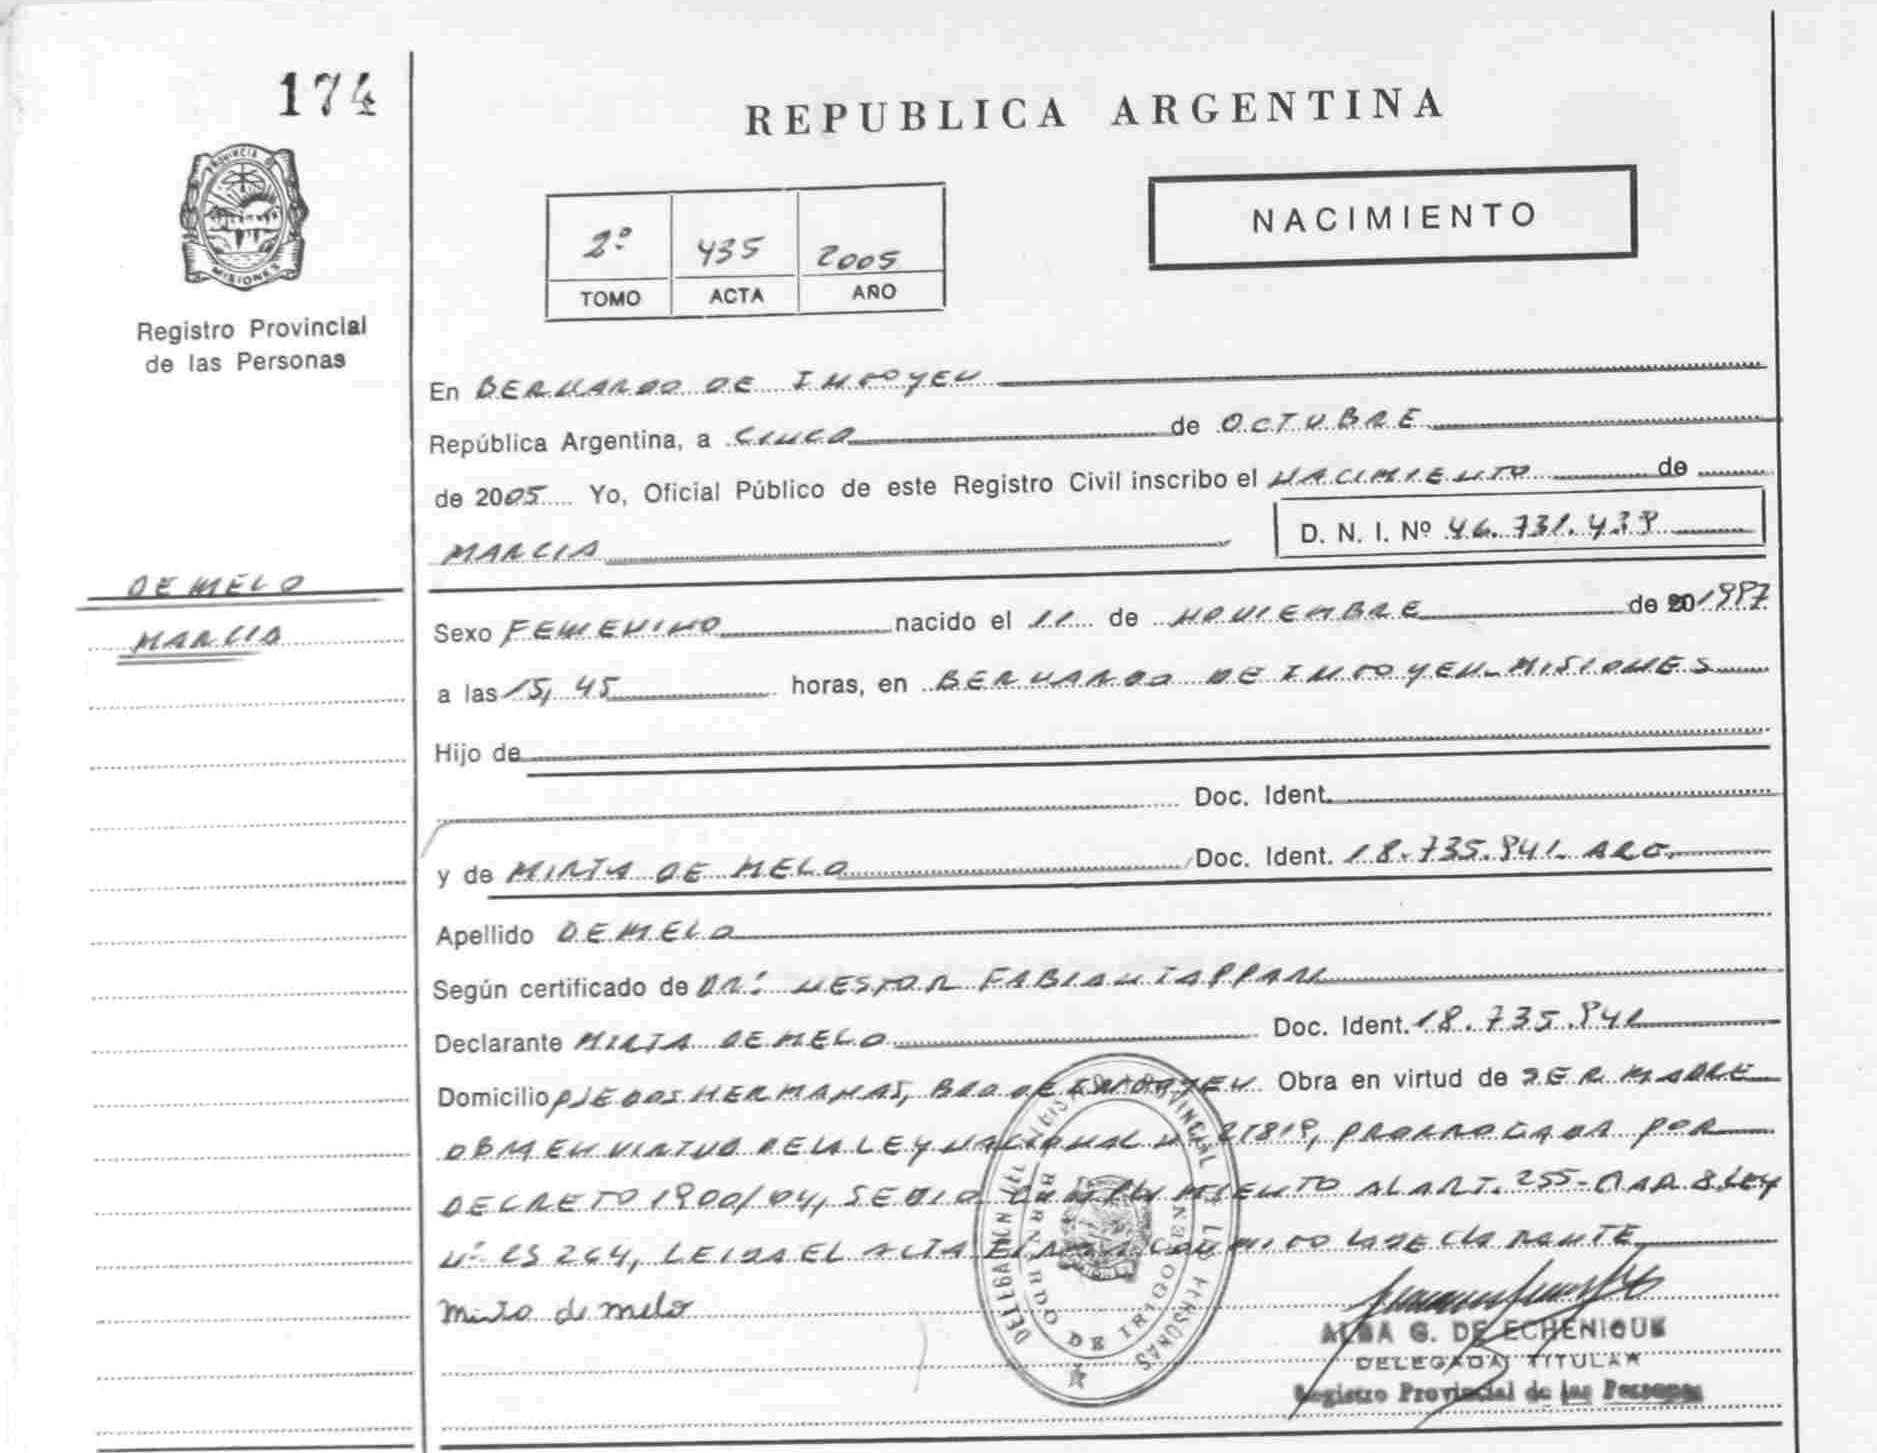 174
REPUBLICA ARGENTINA
PROVINCIA DE
MISIONES
Registro Provincial
de las Personas
2º 435 2005
TOMO ACTA AÑO
NACIMIENTO
En BERNARDO DE IRIGOYEN
República Argentina, a CINCO de OCTUBRE
de 2005 Yo, Oficial Público de este Registro Civil inscribo el NACIMIENTO de
MARCIA D. N. I. Nº 46.731.439
DE MELO
MARCIA
Sexo FEMENINO nacido el 11 de NOVIEMBRE de 1997
a las 15,45 horas, en BERNARDO DE IRIGOYEN-MISIONES
Hijo de
Doc. Ident.
y de MIRTA DE MELO Doc. Ident. 18.735.941 ARG.
Apellido DE MELO
Según certificado de DR: NESTOR FABIAN TAPPARI
Declarante MIRTA DE MELO Doc. Ident. 18.735.941
Domicilio PJE DOS HERMANAS, BDO DE IRIGOYEN Obra en virtud de SER MADRE
OBRA EN VIRTUD DE LA LEY NACIONAL Nº 21819, PRORROGADA POR
DECRETO 1900/04, SE DIO CUMPLIMIENTO AL ART. 255- LEY
Nº 25264, LEIDA EL ACTA CONMIGO LA DECLARANTE
Mirta de melo
DELEGACION DEL REGISTRO PROVINCIAL DE LAS PERSONAS
BERNARDO DE IRIGOYEN
ALBA G. DE ECHENIQUE
DELEGADA TITULAR
Registro Provincial de las Personas